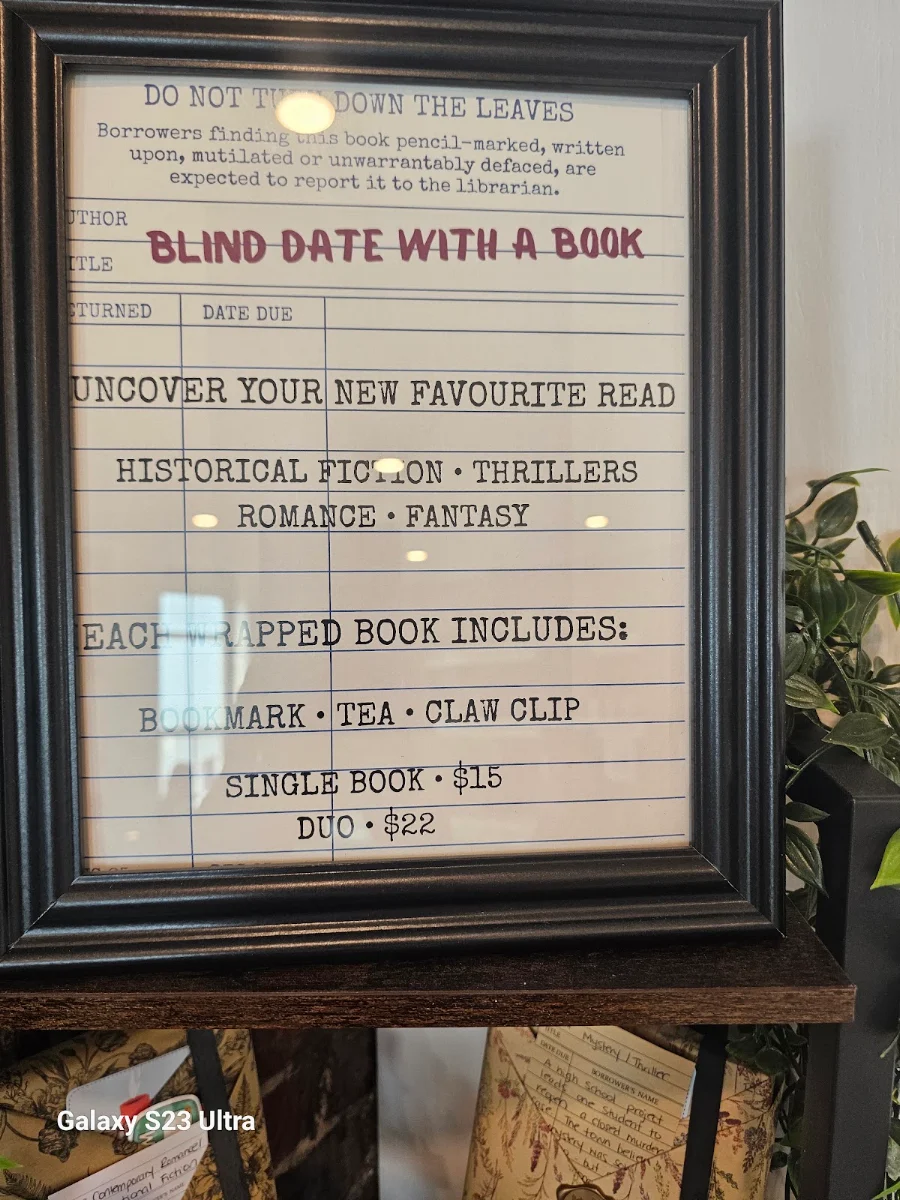 DO NOT TURN DOWN THE LEAVES
Borrowers finding this book pencil-marked, written
upon, mutilated or unwarrantably defaced, are
expected to report it to the librarian.
UTHOR
BLIND DATE WITH A BOOK
ITLE
ETURNED DATE DUE
UNCOVER YOUR NEW FAVOURITE READ
HISTORICAL FICTION • THRILLERS
ROMANCE • FANTASY
EACH WRAPPED BOOK INCLUDES:
BOOKMARK • TEA • CLAW CLIP
SINGLE BOOK • $15
DUO • $22
TITLE Mystery / Thriller
DATE DUE BORROWER'S NAME
A high school project
leads one student to
reopen a closed murder
case. The town believes
mystery was
but
Galaxy S23 Ultra
Contemporary Romance/
tional Fiction